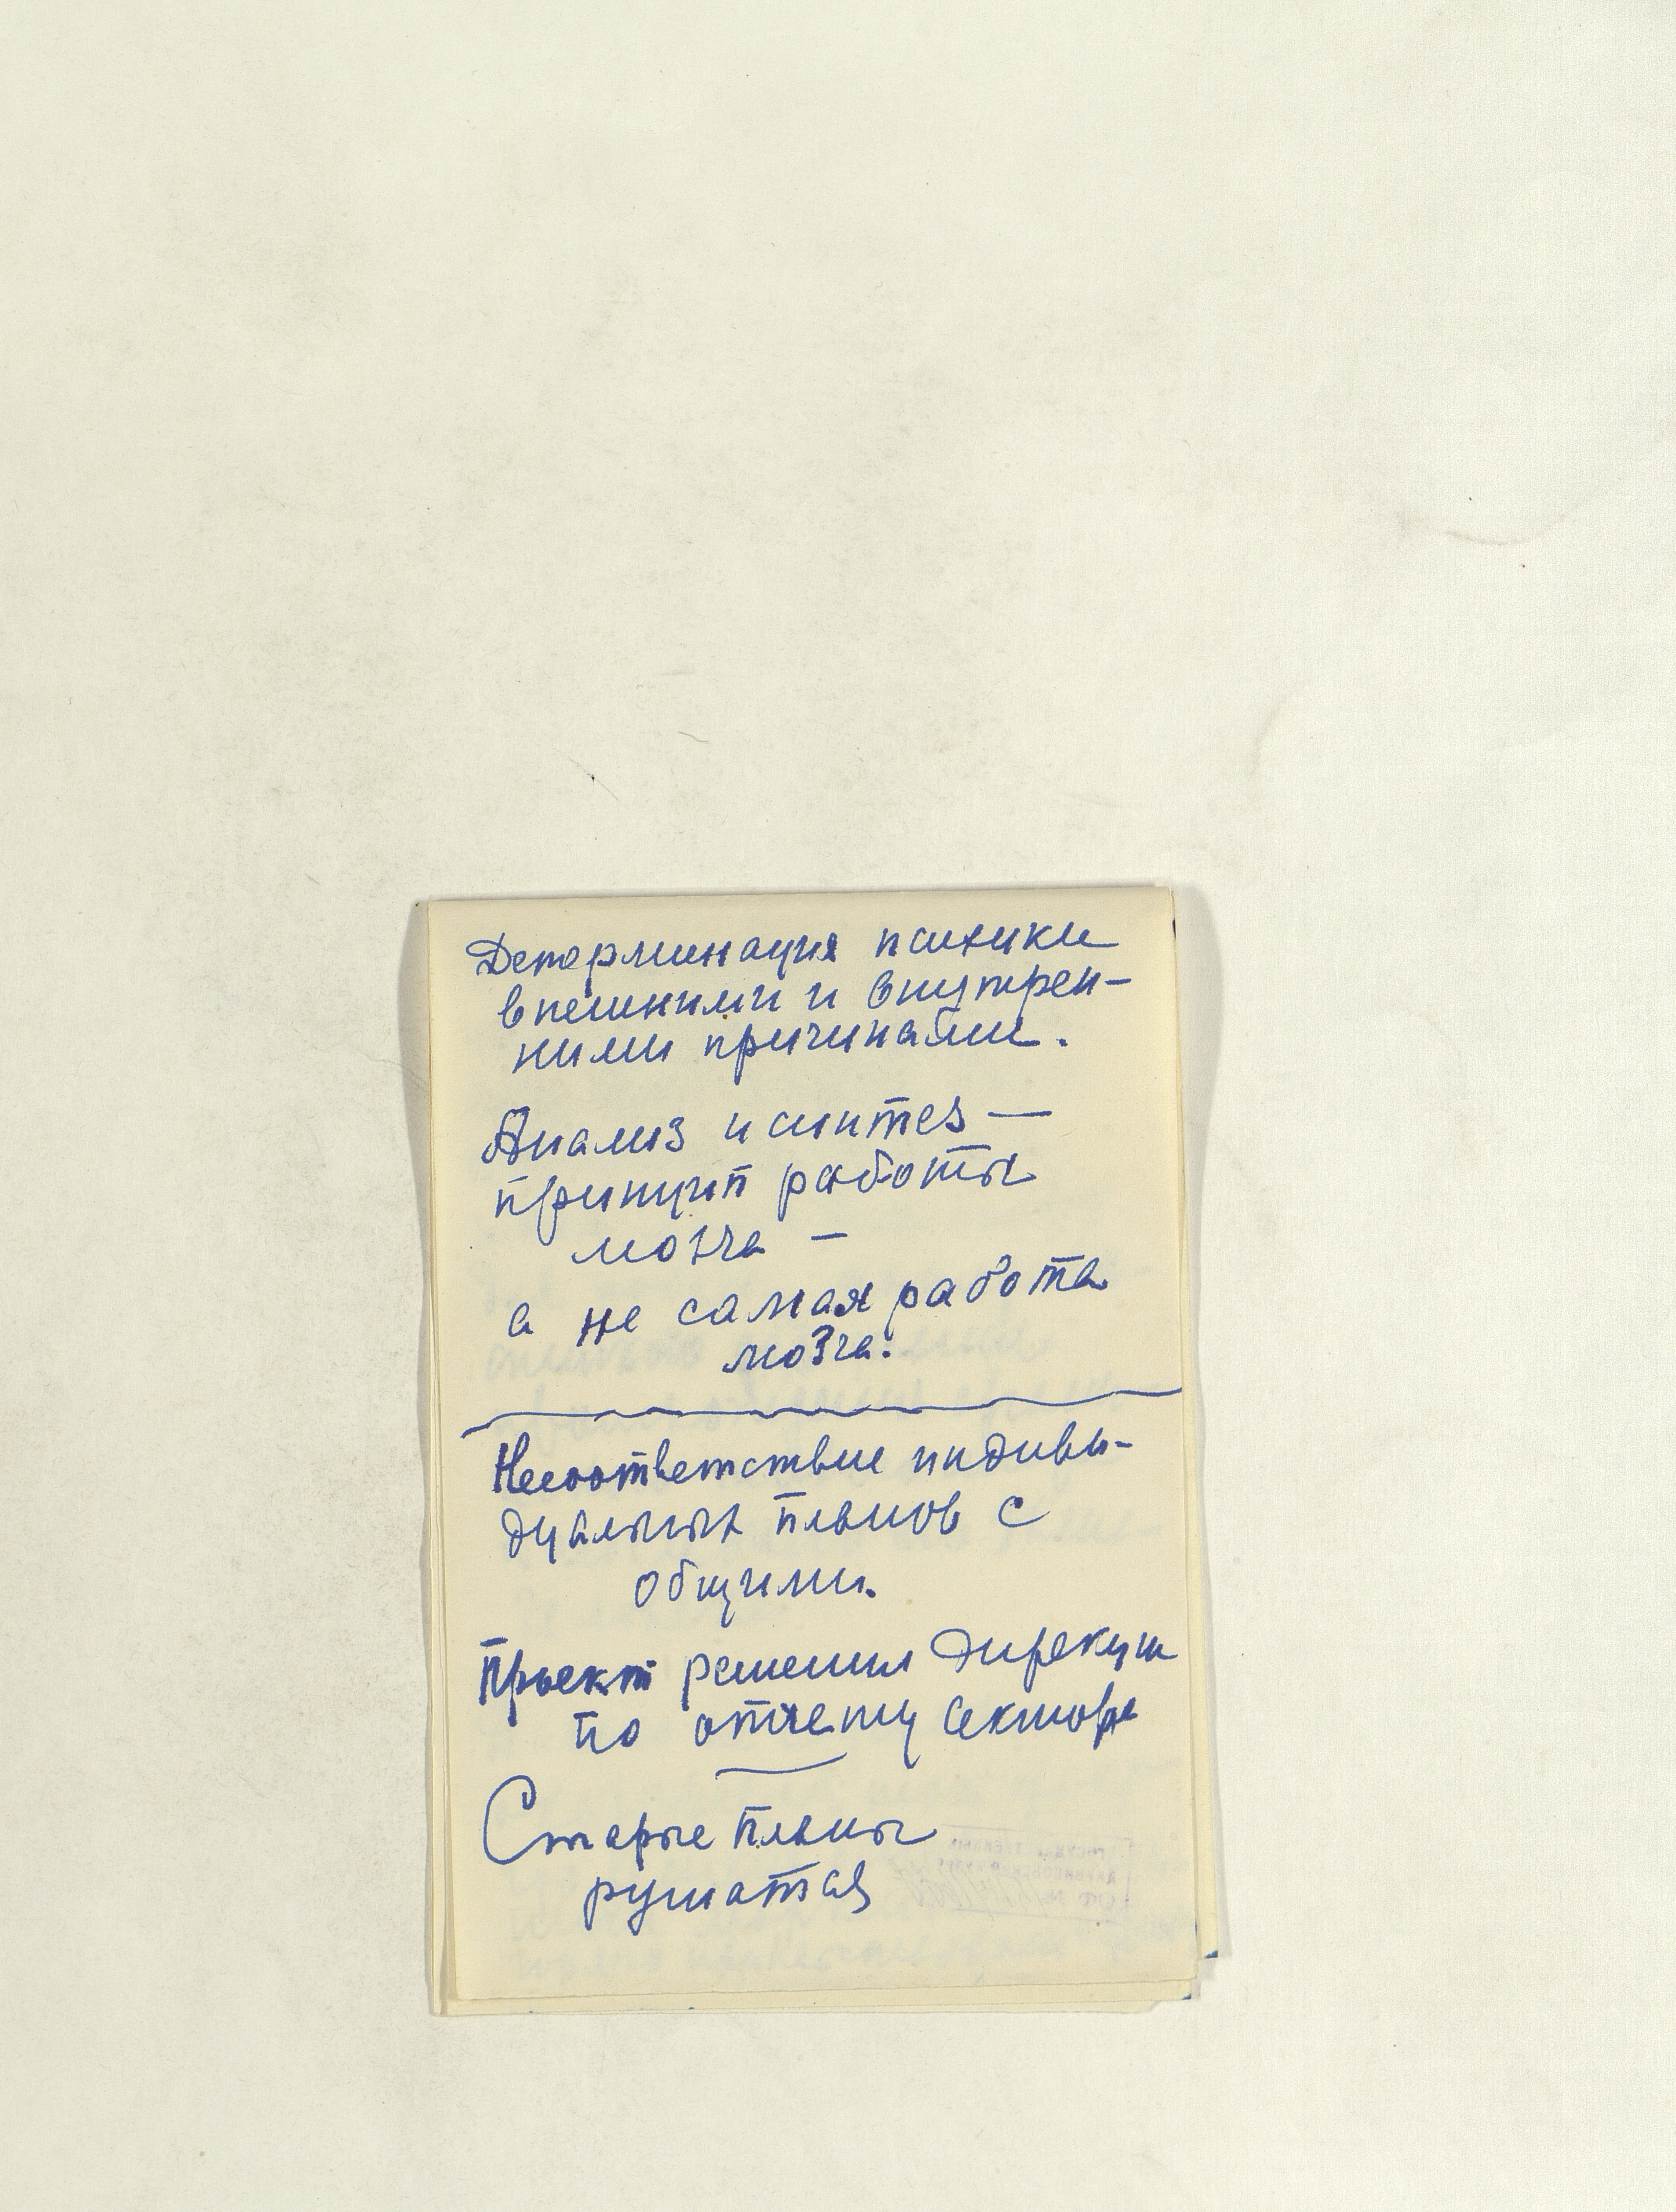 Детерминация психики
внешними и внутрен-
ними причинами.
Анализ и синтез —
принцип работы
мозга —
а не самая работа
мозга.
Несоответствие индиви-
дуальных планов с
общими.
Проект решения дирекции
по отчету сектора
Старые планы
рушатся